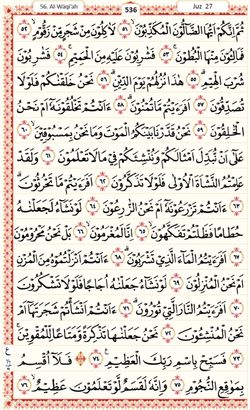 56. Al Wāqi'ah 536 Juz 27
ثُمَّ إِنَّكُمْ أَيُّهَا الضَّالُّونَ الْمُكَذِّبُونَ ٥١ لَآكِلُونَ مِنْ شَجَرٍ مِّنْ زَقُّومٍ ٥٢
فَمَالِـُٔونَ مِنْهَا الْبُطُونَ ٥٣ فَشٰرِبُونَ عَلَيْهِ مِنَ الْحَمِيمِ ٥٤ فَشٰرِبُونَ
شُرْبَ الْهِيمِ ٥٥ هٰذَا نُزُلُهُمْ يَوْمَ الدِّينِ ٥٦ نَحْنُ خَلَقْنٰكُمْ فَلَوْلَا
تُصَدِّقُونَ ٥٧ أَفَرَءَيْتُمْ مَّا تُمْنُونَ ٥٨ ءَأَنْتُمْ تَخْلُقُونَهُ أَمْ نَحْنُ
الْخٰلِقُونَ ٥٩ نَحْنُ قَدَّرْنَا بَيْنَكُمُ الْمَوْتَ وَمَا نَحْنُ بِمَسْبُوقِينَ ٦٠
عَلَىٰ أَنْ نُّبَدِّلَ أَمْثَالَكُمْ وَنُنْشِئَكُمْ فِي مَا لَا تَعْلَمُونَ ٦١ وَلَقَدْ
عَلِمْتُمُ النَّشْأَةَ الْأُولَىٰ فَلَوْلَا تَذَكَّرُونَ ٦٢ أَفَرَءَيْتُمْ مَّا تَحْرُثُونَ ٦٣
ءَأَنْتُمْ تَزْرَعُونَهُ أَمْ نَحْنُ الزّٰرِعُونَ ٦٤ لَوْ نَشَاءُ لَجَعَلْنٰهُ
حُطَامًا فَظَلْتُمْ تَفَكَّهُونَ ٦٥ إِنَّا لَمُغْرَمُونَ ٦٦ بَلْ نَحْنُ مَحْرُومُونَ
٦٧ أَفَرَءَيْتُمُ الْمَاءَ الَّذِي تَشْرَبُونَ ٦٨ ءَأَنْتُمْ أَنْزَلْتُمُوهُ مِنَ الْمُزْنِ
أَمْ نَحْنُ الْمُنْزِلُونَ ٦٩ لَوْ نَشَاءُ جَعَلْنٰهُ أُجَاجًا فَلَوْلَا تَشْكُرُونَ
٧٠ أَفَرَءَيْتُمُ النَّارَ الَّتِي تُورُونَ ٧١ ءَأَنْتُمْ أَنْشَأْتُمْ شَجَرَتَهَا أَمْ
نَحْنُ الْمُنْشِـُٔونَ ٧٢ نَحْنُ جَعَلْنٰهَا تَذْكِرَةً وَّمَتَاعًا لِّلْمُقْوِينَ
٧٣ فَسَبِّحْ بِاسْمِ رَبِّكَ الْعَظِيمِ ٧٤ فَلَا أُقْسِمُ
بِمَوٰقِعِ النُّجُومِ ٧٥ وَإِنَّهُ لَقَسَمٌ لَّوْ تَعْلَمُونَ عَظِيمٌ ٧٦